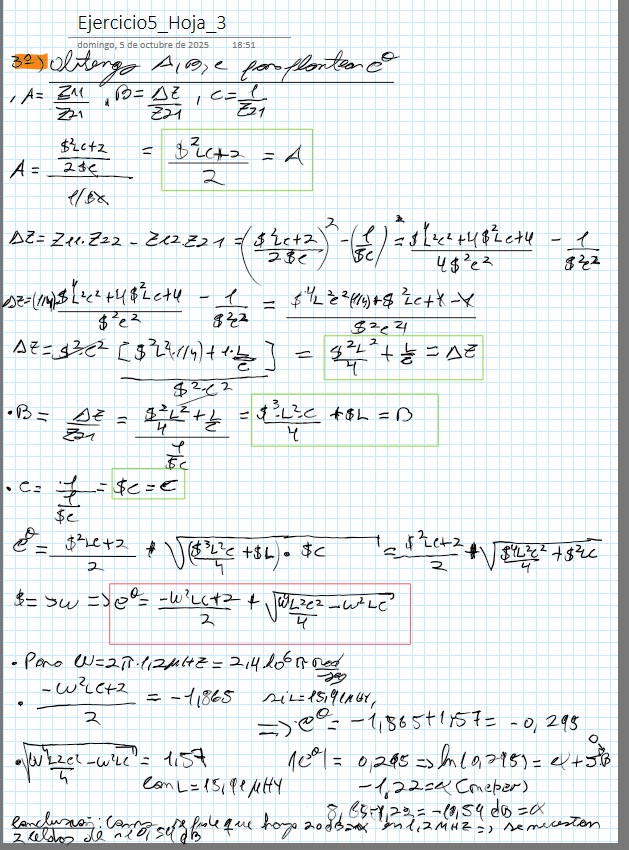 Ejercicio5_Hoja_3
domingo, 5 de octubre de 2025 18:51
3º) Obtengo A, B, C para plantear e^θ
, A = Z11/Z21 , B = ΔZ/Z21 , C = 1/Z21
A = (($²LC+2)/(2$C))/(1/$C) = ($²LC+2)/2 = A
ΔZ = Z11.Z22 - Z12.Z21 = (($²LC+2)/(2$C))² - (1/($C))² = ($⁴L²C²+4$²LC+4)/(4$²C²) - 1/($²C²)
ΔZ = (1/4)($⁴L²C²+4$²LC+4)/($²C²) - 1/($²C²) = ($⁴L²C²(1/4)+$²LC+1-1)/($²C²)
ΔZ = $²·C² [$²L²·1/4 + 1·L/C]/($²·C²) = $²L²/4 + L/C = ΔZ
· B = ΔZ/Z21 = ($²L²/4 + L/C)/(1/($C)) = $³·L²·C/4 + $L = B
· C = 1/(1/($C)) = $C = C
e^θ = ($²LC+2)/2 + √(($³L²C/4 + $L) · $C) = ($²LC+2)/2 + √($⁴L²C²/4 + $²LC)
$ = jω => e^θ = (-ω²LC+2)/2 + √(ω⁴L²C²/4 - ω²LC)
· Para ω = 2π·1,2MHZ = 2,4·10⁶ π rad/sg
· (-ω²LC+2)/2 = -1,865 si L = 15,91μHY,
=> e^θ = -1,865+1,57 = -0,295
· √(ω⁴L²C²/4 - ω²LC) = 1,57 |e^θ| = 0,295 => ln(0,295) = α + jB
con L = 15,91μHY -1,22 = α (neper)
8,68·-1,22 = -10,54 dB = α
Conclusión: Como se pide que haya 20dB en 1,2MHZ => se necesitan
2 celdas de -10,54 dB